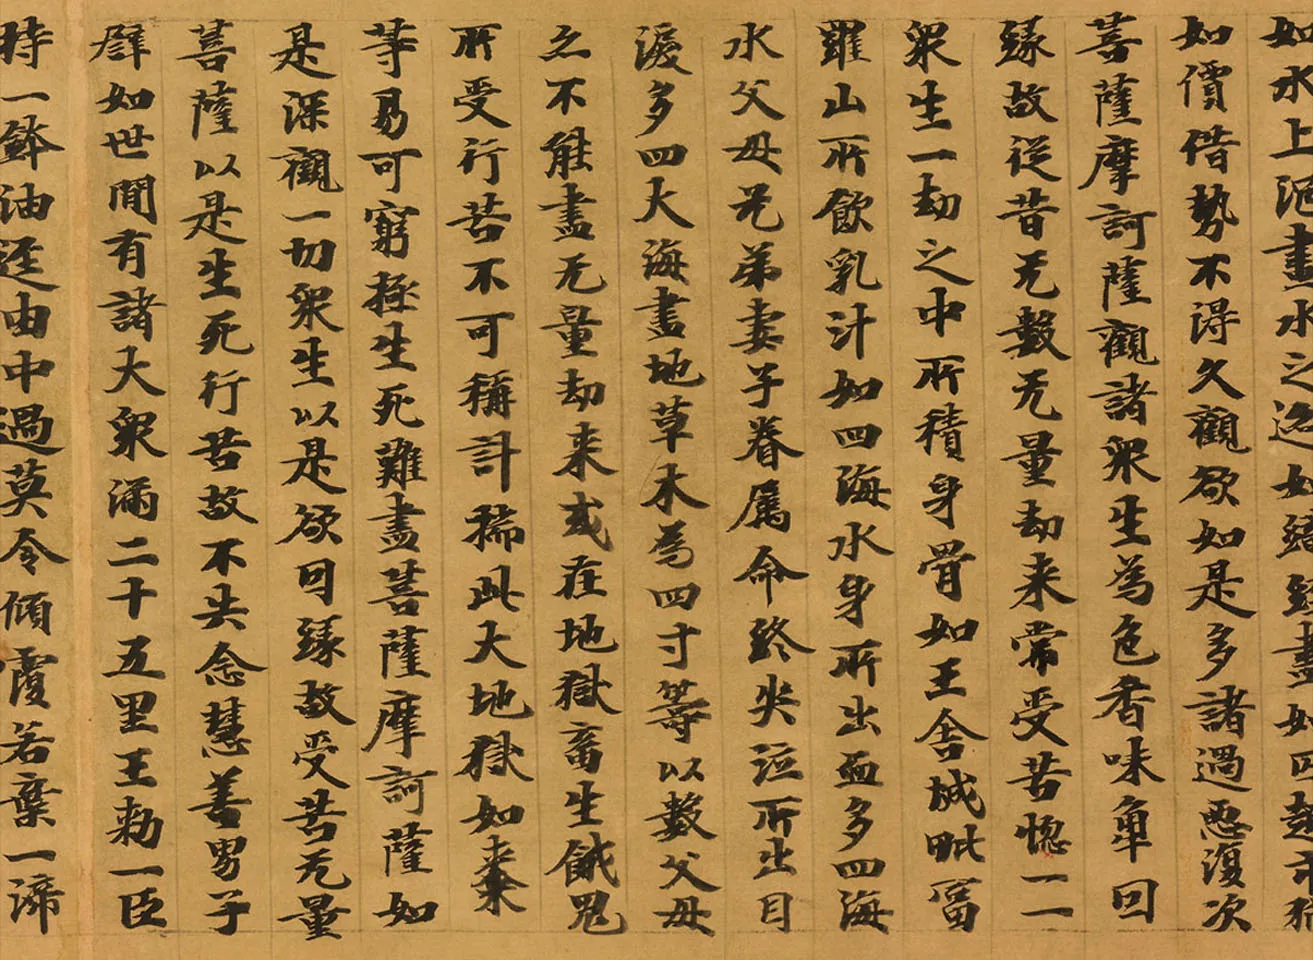 如水上泥畫水之迹如
如價借勢不得久觀欲如是多諸過惡復次
菩薩摩訶薩觀諸衆生為色香味𧢻因
緣故從昔无數无量劫来常受苦惱一一
衆生一劫之中所積身骨如王舍城毗富
羅山所飲乳汁如四海水身所出血多四海
水父母兄弟妻子眷属命終𡘜泣所出目
淚多四大海盡地草木為四寸等以數父母
之不能盡无量劫来或在地獄畜生餓鬼
所受行苦不可稱計揣此大地獄如来棗
等易可窮極生死難盡菩薩摩訶薩如
是深觀一切衆生以是欲因緣故受苦无量
菩薩以是生死行苦故不失念慧善男子
辟如世間有諸大衆滿二十五里王勑一臣
持一鉢油逕由中過莫令傾覆若棄一渧